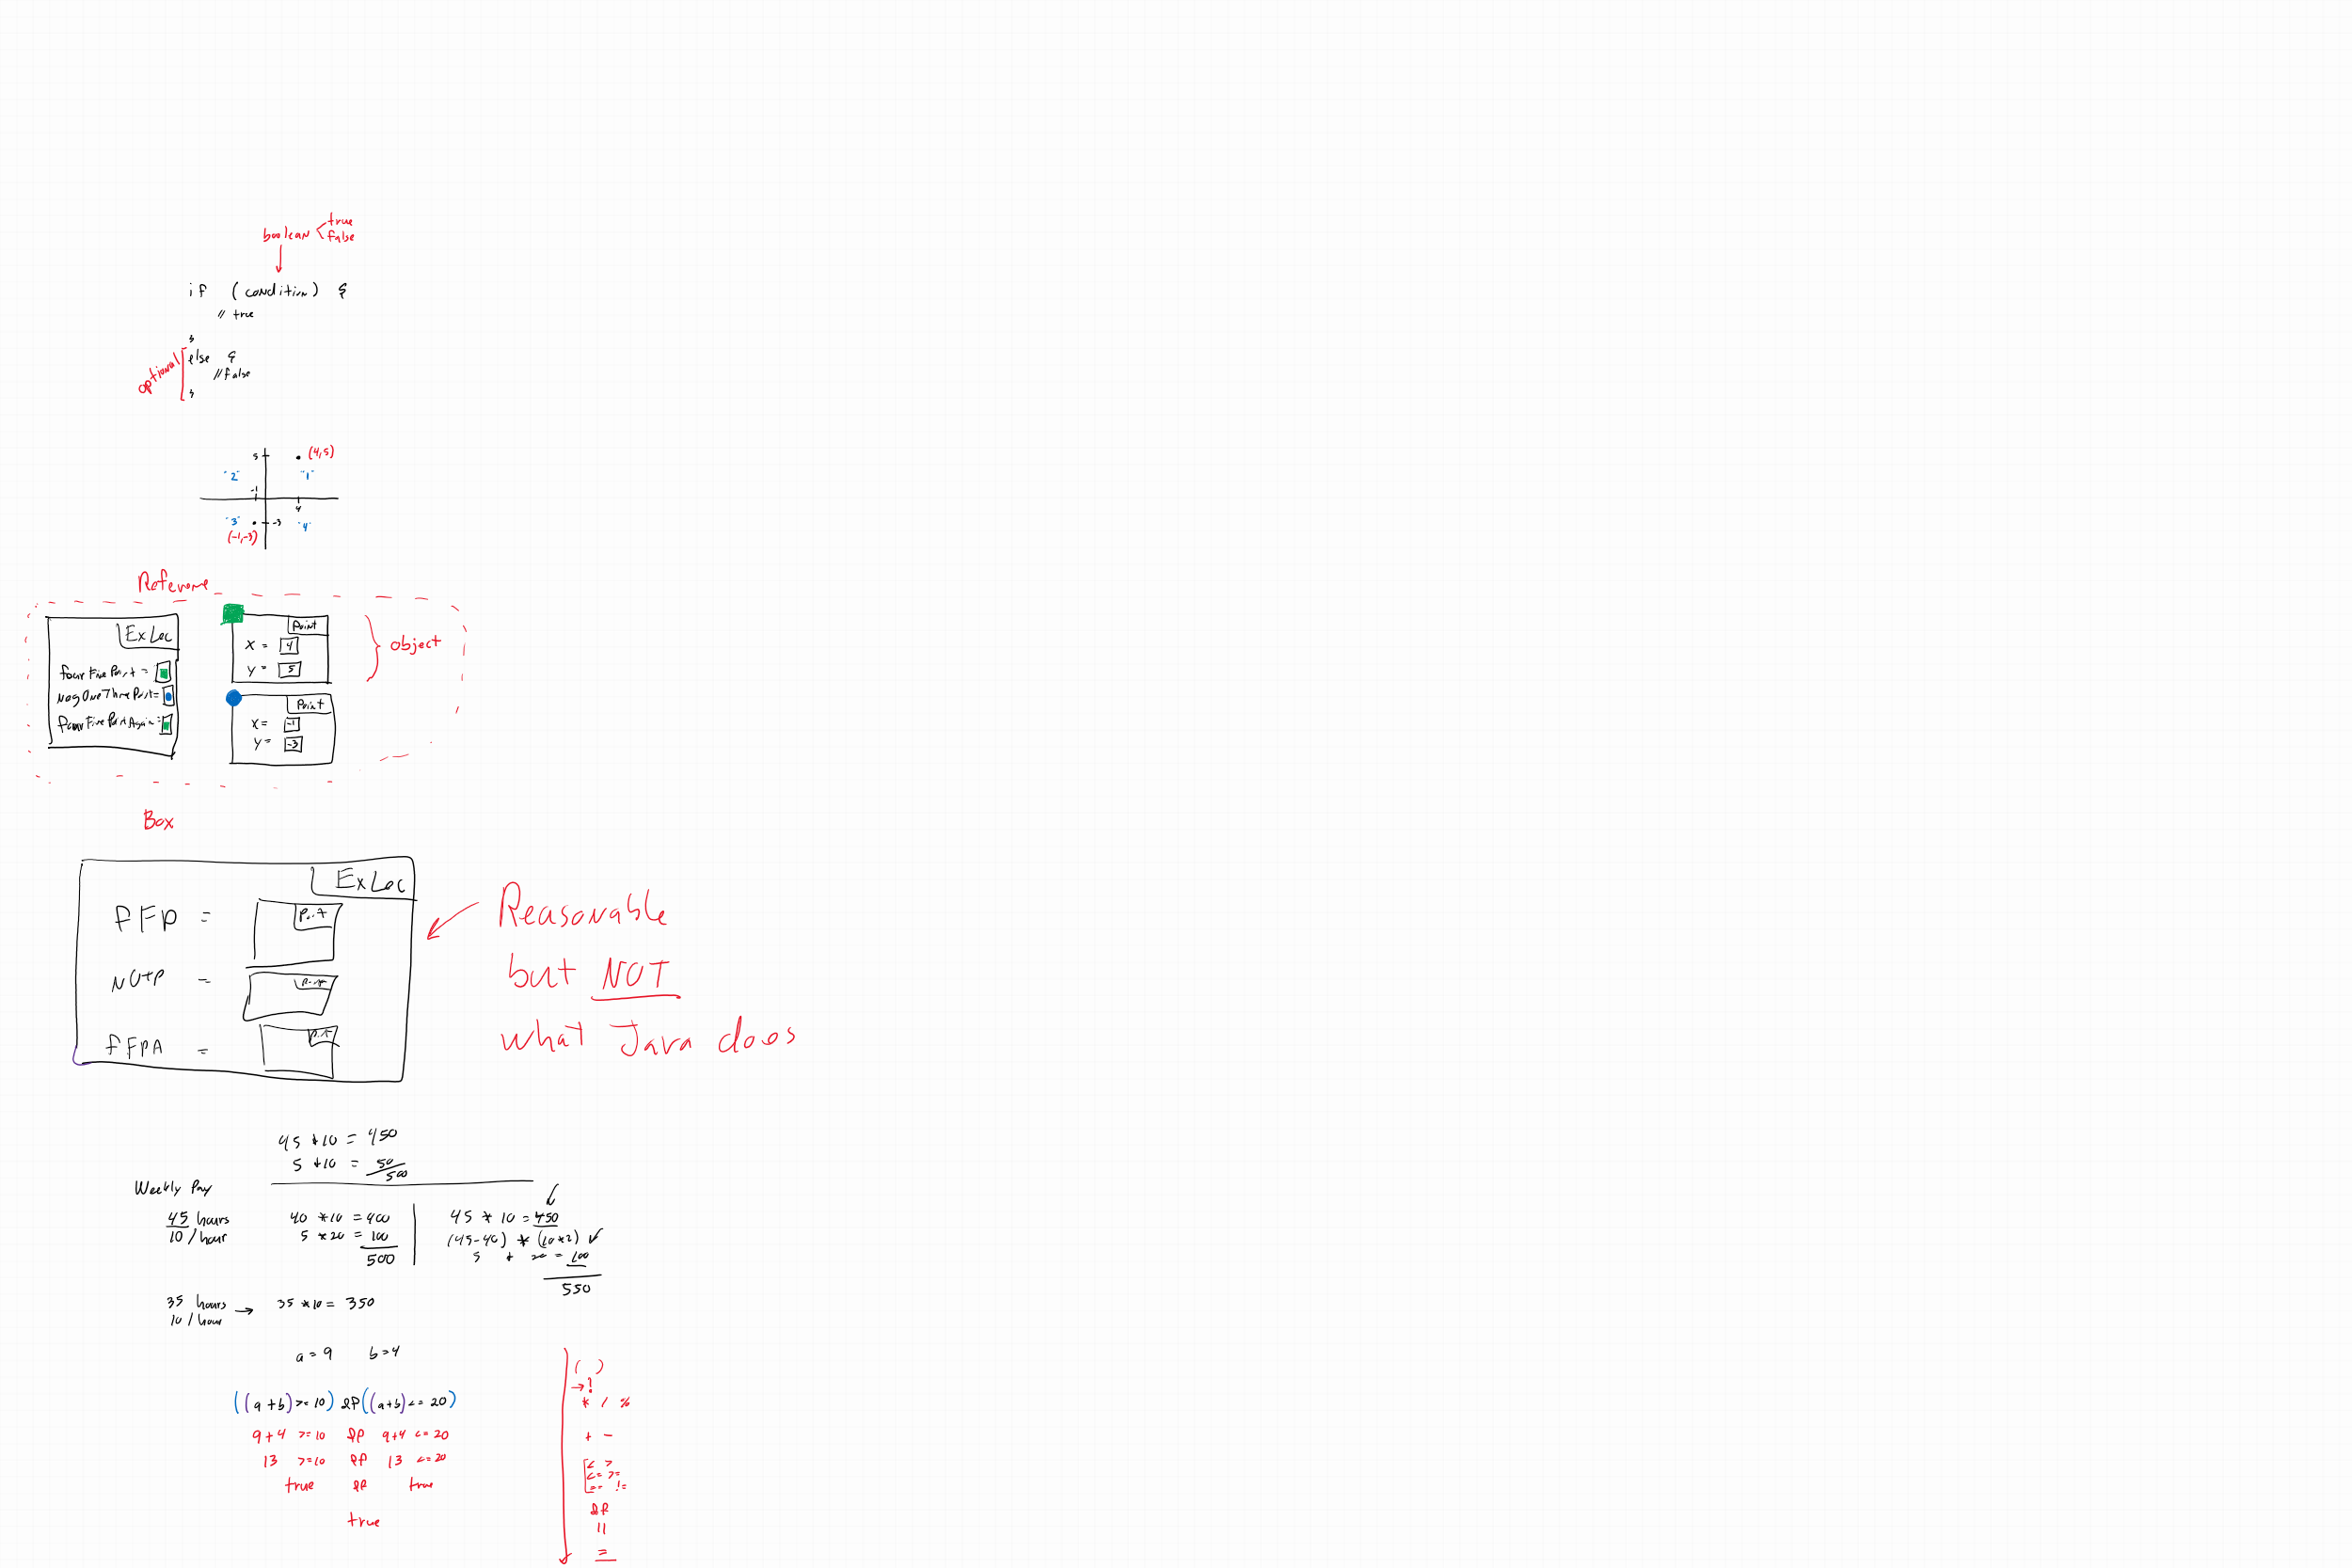 boolean < true
false
if (condition) {
// true
}
optional
else {
// false
}
5 (4,5)
"2" "1"
-1
4
"3" -3 "4"
(-1,-3)
Reference
ExLec
fourFivePoint =
negOneThreePoint =
fourFivePointAgain =
Point
x = 4
y = 5
object
Point
x = -1
y = -3
Box
ExLec
fFP = Point
NOTP = Point
fFPA = Point
Reasonable
but NOT
what Java does
45 * 10 = 450
5 * 10 = 50
500
Weekly Pay
45 hours
10 / hour
40 * 10 = 400
5 * 20 = 100
500
45 * 10 = 450
(45-40) * (10*2)
5 * 20 = 100
550
35 hours → 35 * 10 = 350
10 / hour
a = 9 b = 4
((a+b) >= 10) && ((a+b) <= 20)
9+4 >= 10 && 9+4 <= 20
13 >= 10 && 13 <= 20
true && true
true
( )
→ !
* / %
+ -
< >
<= >=
== !=
&&
||
=